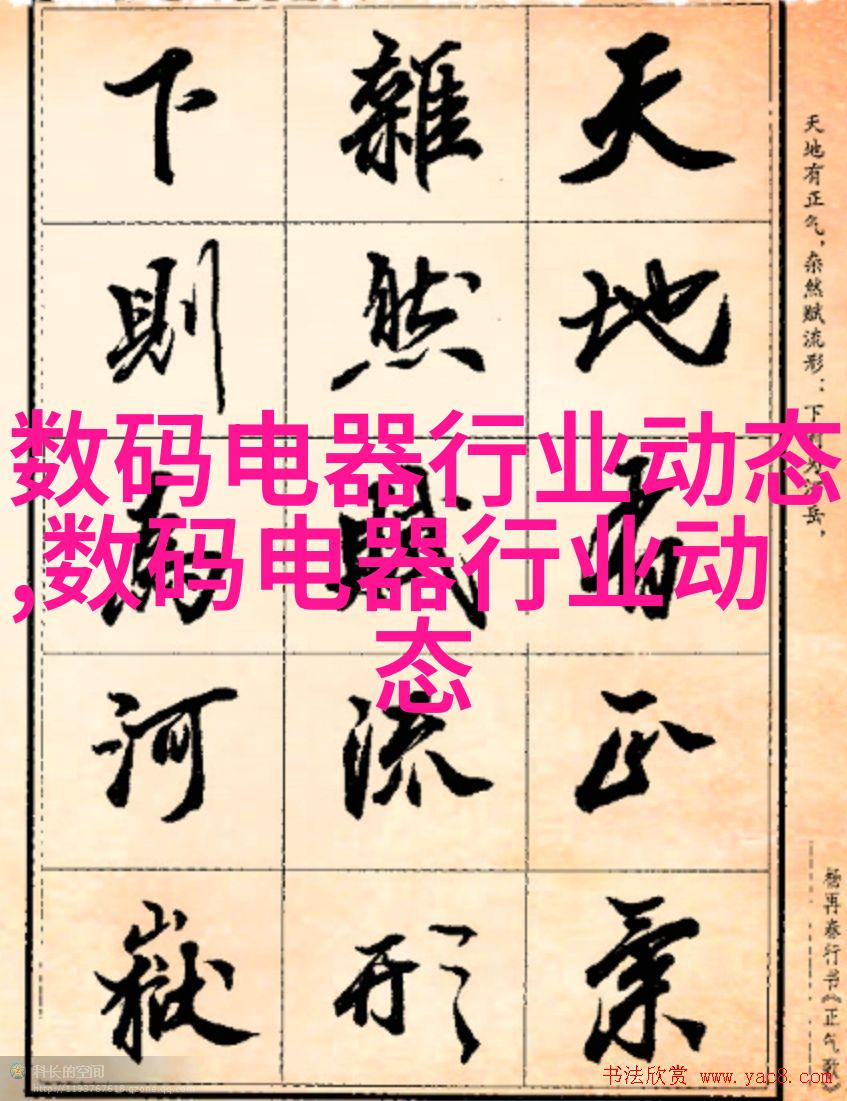 天地有正气
杂然赋流形
下则为河嶽
天地有正气，杂然赋流形；下则为河岳，
杨再春行书《正气歌》
数码电器行业动态
,数码电器行业动
态
科长的空间
http://1193767618.qzone.qq.com
书法欣赏 www.yac8.com